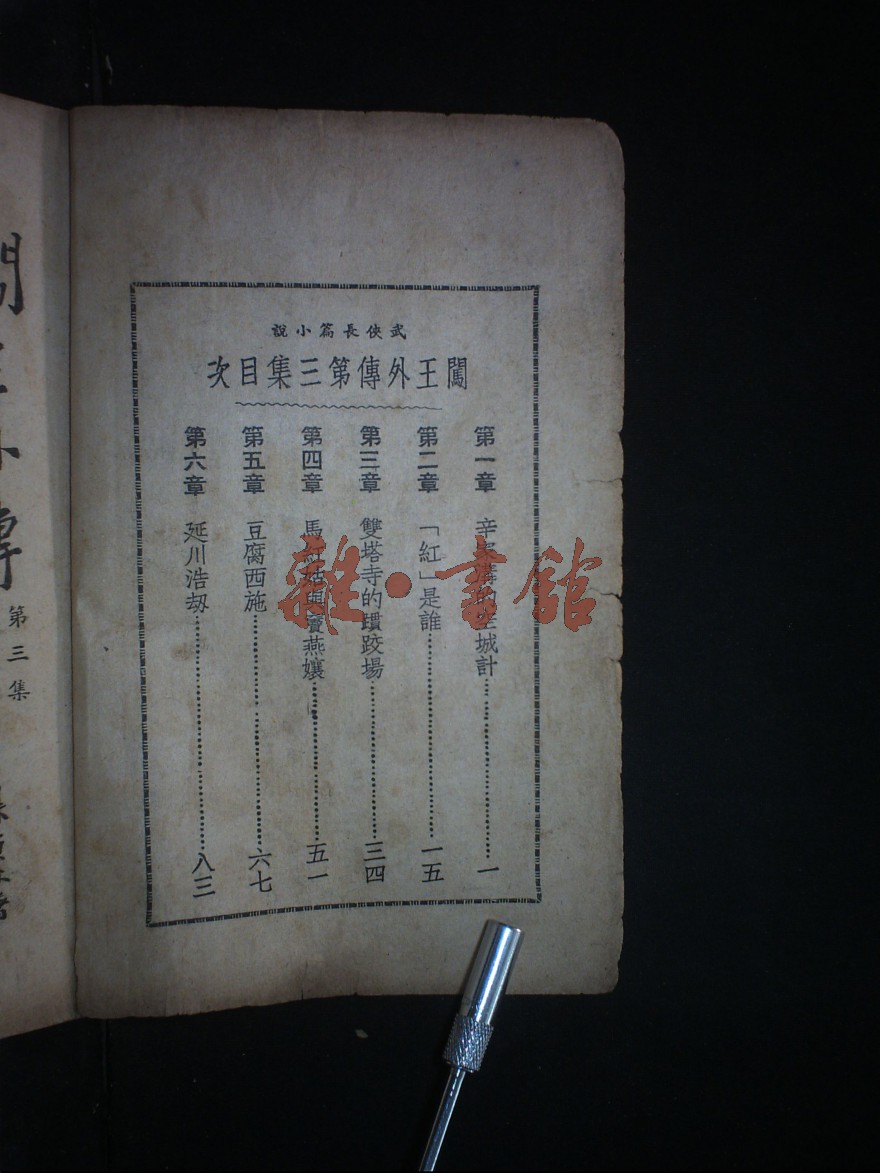 武俠長篇小說
闖王外傳第三集目次
第一章 辛家溝的空城計 一
第二章 「紅」是誰 一五
第三章 雙塔寺的摜跤場 三四
第四章 馬紅姑與竇燕孃 五一
第五章 豆腐西施 六七
第六章 延川浩刼 八三
闖王外傳
第三集
雜·書館